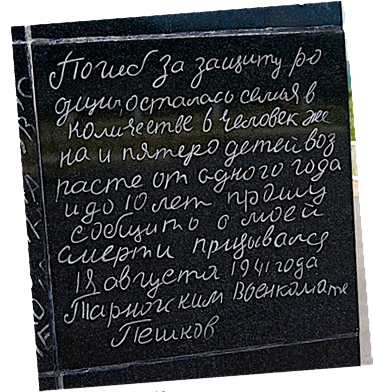 Погиб за защиту ро
дины, осталась семья в
количестве 6 человек же
на и пятеро детей воз
расте от одного года
и до 10 лет прошу
сообщить о моей
смерти призывался
18 августа 1941 года
Тарногским Военкомате
Пешков